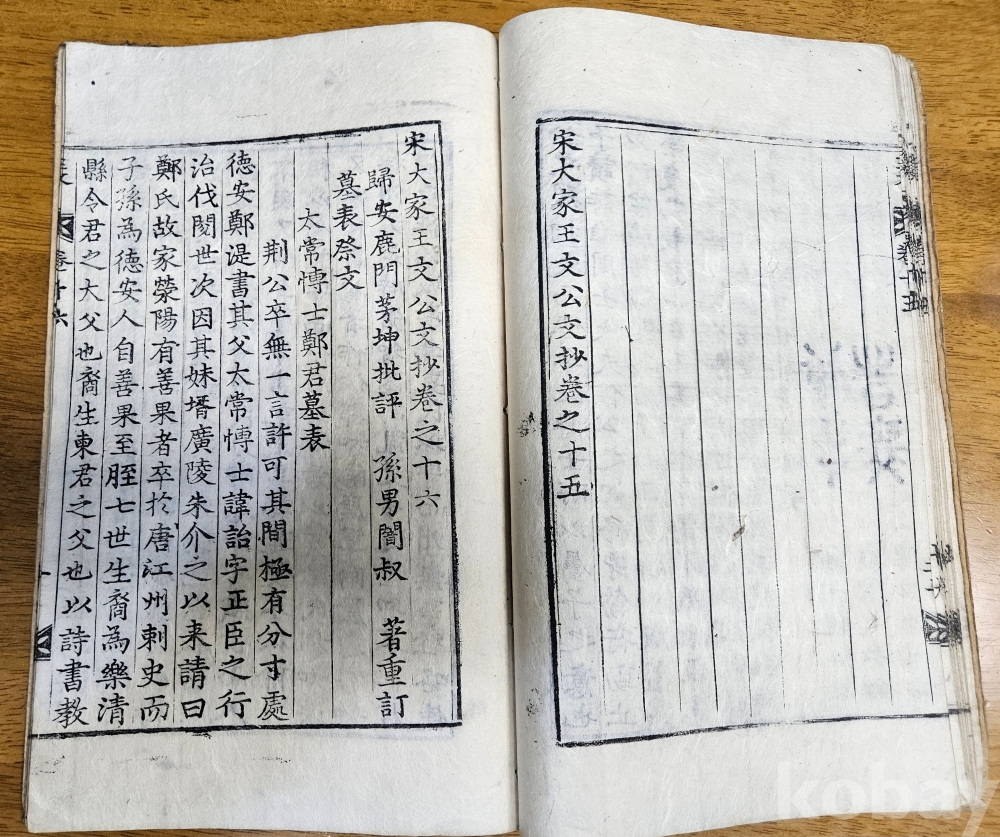 宋大家王文公文抄卷之十五
宋大家王文公文抄卷之十六
歸安鹿門茅坤批評 孫男闇叔 著重訂
墓表祭文
太常博士鄭君墓表
荆公卒無一言許可其間極有分寸處
德安鄭湜書其父太常博士諱詒字正臣之行
治伐閱世次因其妹壻廣陵朱介之以来請曰
鄭氏故家滎陽有善果者卒扵唐江州刺史而
子孫為德安人自善果至胵七世生裔為樂清
縣令君之大父也裔生東君之父也以詩書教
卷十六
kobay